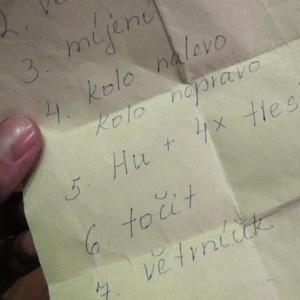 2.
3. míjení
4. kolo nalevo
kolo napravo
5. Hu + 4x
6. točit
7. větrník